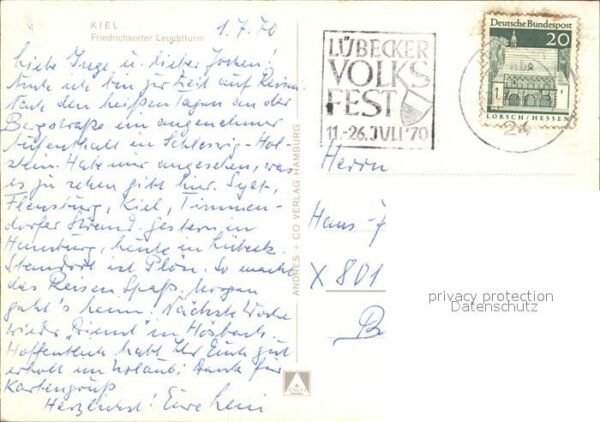 KIEL
Friedrichsorter Leuchtturm
1.7.70
Liebe Inge u. lieber Jochen!
Auch ich bin zur Zeit auf Reisen.
Nach den heißen Tagen an der
Bergstraße ein angenehmer
Aufenthalt in Schleswig-Hol-
stein. Habe mir angesehen, was
es zu sehen gibt hier. Sylt,
Flensburg, Kiel, Timmen-
dorfer Strand. Gestern in
Hamburg, heute in Lübeck.
Standort ist Plön. So macht
das Reisen Spaß. Morgen
geht's heim. Nächste Woche
wieder "Dienst" in Hösbach.
Hoffentlich habt Ihr Euch gut
erholt im Urlaub. Dank für
Kartengruß
Herzlichst! Eure
ANDRES + CO VERLAG HAMBURG
LÜBECKER
VOLKS
FEST
11.-26. JULI '70
Deutsche Bundespost
20
LORSCH/HESSEN
24
Herrn
Hans-J
X 801
privacy protection
Datenschutz